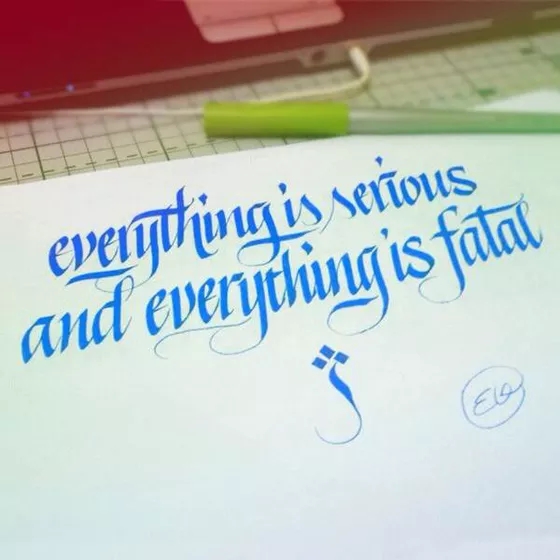 everything is serious
and everything is fatal